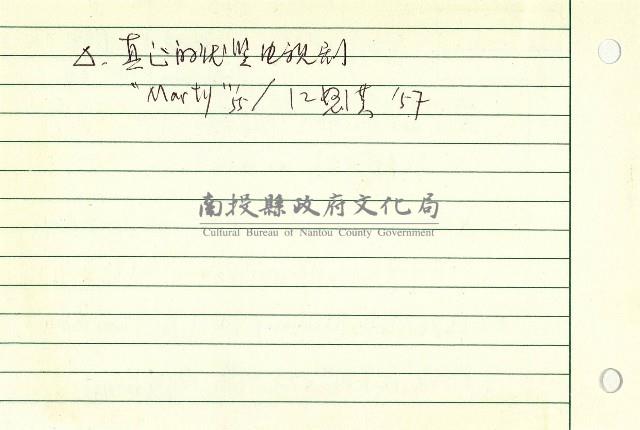 △. 真正的 电视剧
"Marty" '55 / 12怒漢 '57
南投縣政府文化局
Cultural Bureau of Nantou County Government